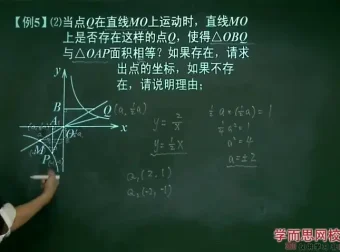 【例5】⑵当点Q在直线MO上运动时，直线MO
上是否存在这样的点Q，使得△OBQ
与△OAP面积相等？如果存在，请求
出点的坐标，如果不存
在，请说明理由；
y
B
Q
(a, ½a)
A
O
x
M
P
y = 2/x
y = ½x
½a × (½a) = 1
¼a² = 1
a² = 4
a = ±2
(2, 1)
(-2, -1)
学而思网校